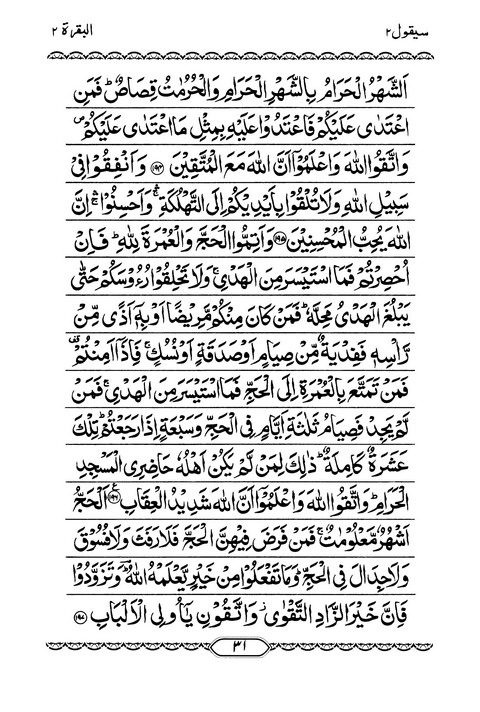 سيقول٢ البقرة ٢
اَلشَّهْرُ الْحَرَامُ بِالشَّهْرِ الْحَرَامِ وَالْحُرُمٰتُ قِصَاصٌ ؕ فَمَنِ
اعْتَدٰى عَلَيْكُمْ فَاعْتَدُوْا عَلَيْهِ بِمِثْلِ مَا اعْتَدٰى عَلَيْكُمْ ۪
وَاتَّقُوا اللّٰهَ وَاعْلَمُوْۤا اَنَّ اللّٰهَ مَعَ الْمُتَّقِيْنَ ﴿۱۹۴﴾ وَاَنْفِقُوْا فِيْ
سَبِيْلِ اللّٰهِ وَلَا تُلْقُوْا بِاَيْدِيْكُمْ اِلَى التَّهْلُكَةِ ۛۚ وَاَحْسِنُوْا ۛۚ اِنَّ
اللّٰهَ يُحِبُّ الْمُحْسِنِيْنَ ﴿۱۹۵﴾ وَاَتِمُّوا الْحَجَّ وَالْعُمْرَةَ لِلّٰهِ ؕ فَاِنْ
اُحْصِرْتُمْ فَمَا اسْتَيْسَرَ مِنَ الْهَدْيِ ۚ وَلَا تَحْلِقُوْا رُءُوْسَكُمْ حَتّٰى
يَبْلُغَ الْهَدْيُ مَحِلَّهٗ ؕ فَمَنْ كَانَ مِنْكُمْ مَّرِيْضًا اَوْ بِهٖۤ اَذًى مِّنْ
رَّاْسِهٖ فَفِدْيَةٌ مِّنْ صِيَامٍ اَوْ صَدَقَةٍ اَوْ نُسُكٍ ۚ فَاِذَاۤ اَمِنْتُمْ ۥ
فَمَنْ تَمَتَّعَ بِالْعُمْرَةِ اِلَى الْحَجِّ فَمَا اسْتَيْسَرَ مِنَ الْهَدْيِ ۚ فَمَنْ
لَّمْ يَجِدْ فَصِيَامُ ثَلٰثَةِ اَيَّامٍ فِي الْحَجِّ وَسَبْعَةٍ اِذَا رَجَعْتُمْ ؕ تِلْكَ
عَشَرَةٌ كَامِلَةٌ ؕ ذٰلِكَ لِمَنْ لَّمْ يَكُنْ اَهْلُهٗ حَاضِرِي الْمَسْجِدِ
الْحَرَامِ ؕ وَاتَّقُوا اللّٰهَ وَاعْلَمُوْۤا اَنَّ اللّٰهَ شَدِيْدُ الْعِقَابِ ﴿۱۹۶﴾ اَلْحَجُّ
اَشْهُرٌ مَّعْلُوْمٰتٌ ۚ فَمَنْ فَرَضَ فِيْهِنَّ الْحَجَّ فَلَا رَفَثَ وَلَا فُسُوْقَ
وَلَا جِدَالَ فِي الْحَجِّ ؕ وَمَا تَفْعَلُوْا مِنْ خَيْرٍ يَّعْلَمْهُ اللّٰهُ ؔ وَتَزَوَّدُوْا
فَاِنَّ خَيْرَ الزَّادِ التَّقْوٰى ؗ وَاتَّقُوْنِ يٰۤاُولِي الْاَلْبَابِ ﴿۱۹۷﴾
٣١